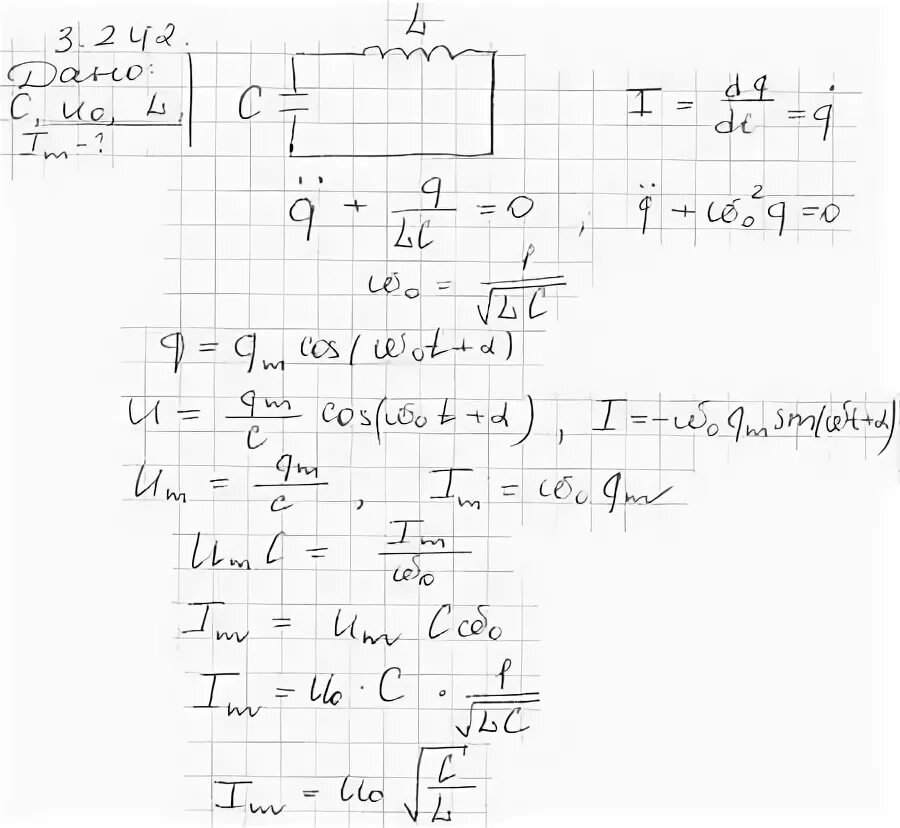 3.242.
Дано:
C, U₀, L,
Iₘ - ?
L
C
I = dq/dt = q̇
q̈ + q/LC = 0 ; q̈ + ω₀²q = 0
ω₀ = 1/√LC
q = qₘ cos(ω₀t + α)
U = qₘ/C cos(ω₀t + α) , I = -ω₀ qₘ sin(ωt + α)
Uₘ = qₘ/C , Iₘ = ω₀ qₘ
UₘC = Iₘ/ω₀
Iₘ = Uₘ C ω₀
Iₘ = U₀ · C · 1/√LC
Iₘ = U₀ √C/L